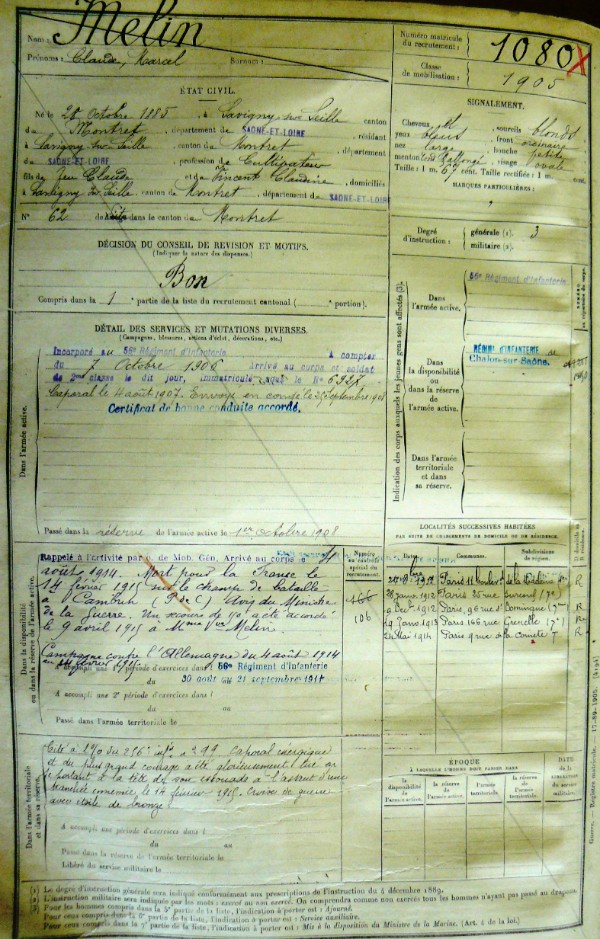 Nom : Melin
Prénoms : Claude, Marcel Surnom :
ÉTAT CIVIL.
Né le 20 octobre 1885, à Savigny sur Seille canton
de Montret, département de SAONE-ET-LOIRE, résidant
à Savigny sur Seille canton de Montret, département
de SAONE-ET-LOIRE, profession de Cultivateur
fils de feu Claude et de Vincent Claudine, domiciliés
à Savigny sur Seille canton de Montret, département de SAONE-ET-LOIRE
N° 62 de dans le canton de Montret
DÉCISION DU CONSEIL DE REVISION ET MOTIFS.
(Indiquer la nature des dispenses.)
Bon
Compris dans la 1 partie de la liste du recrutement cantonal ( portion).
DÉTAIL DES SERVICES ET MUTATIONS DIVERSES.
(Campagnes, blessures, actions d'éclat, décorations, etc.)
Dans l'armée active.
Incorporé au 56e Régiment d'infanterie à compter
du 7 Octobre 1906 Arrivé au corps et soldat
de 2me classe le dit jour, immatriculé sous le N°
Caporal le 4 août 1907. Envoyé en congé le septembre 1908
Certificat de bonne conduite accordé.
Passé dans la réserve de l'armée active le 1er octobre 1908
Dans la disponibilité ou dans la réserve de l'armée active.
Rappelé à l'activité par o. de Mob. Gén. Arrivé au corps le 4
août 1914. Mort pour la France le
14 février 1915 sur le champ de bataille
à Cambrin (P de C) Avis du Ministre
de la Guerre. Un secours de 150f a été accordé
le 9 avril 1915 à Mme Vve Melin.
Campagne contre l'Allemagne du 4 août 1914
au 14 février 1915
A accompli une 1re période d'exercices dans l 56e Régiment d'infanterie
du 30 août au 21 septembre 1911
A accompli une 2e période d'exercices dans l
du au
Passé dans l'armée territoriale le
Numéro au contrôle spécial du recrutement
166
106
Dans l'armée territoriale et dans sa réserve.
Cité à l'O. du 256e infie n° 99 Caporal énergique
et du plus grand courage a été glorieusement tué en
se portant à la tête de son escouade à l'assaut d'une
tranchée ennemie, le 14 février 1915. Croix de guerre
avec étoile de bronze.
A accompli une période d'exercices dans l
du au
Passé dans la réserve de l'armée territoriale le
Libéré du service militaire le
Numéro matricule du recrutement : 1080
Classe de mobilisation : 1905
SIGNALEMENT.
Cheveux et sourcils blonds
yeux bleus front ordinaire
nez large bouche petite
menton rond allongé visage ovale
Taille : 1 m. 67 cent. Taille rectifiée : 1 m. cent.
MARQUES PARTICULIÈRES :
Degré d'instruction :
générale (1). 3
militaire (2).
Indication des corps auxquels les jeunes gens sont affectés (3).
Dans l'armée active.
56e Régiment d'infanterie
Dans la disponibilité ou dans la réserve de l'armée active.
RÉGIM. D'INFANTERIE de
Chalon-sur-Saône.
Dans l'armée territoriale et dans sa réserve.
LOCALITÉS SUCCESSIVES HABITÉES
PAR SUITE DE CHANGEMENTS DE DOMICILE OU DE RÉSIDENCE.
Dates. Communes. Subdivisions de région.
Paris 11 boulevart de la R
28 janv. 1912 Paris 35 rue (7e)
9 Dec. 1912 Paris 96 rue St Dominique (7e) R
19 janv. 1913 Paris 166 rue Grenelle (7e) R
Mai 1914 Paris 9 rue de la Comète 7 R
ÉPOQUE
À LAQUELLE L'HOMME DOIT PASSER DANS
la disponibilité de l'armée active. la réserve de l'armée active. l'armée territoriale. la réserve de l'armée territoriale.
DATE de la LIBÉRATION du service militaire.
Guerre. — Registre matricule. — 17-89-1905.
(1) Le degré d'instruction générale sera indiqué conformément aux prescriptions de l'instruction du 4 décembre 1889.
(2) L'instruction militaire sera indiquée par les mots : exercé ou non exercé. On comprendra comme non exercés tous les hommes n'ayant pas passé au drapeau.
(3) Pour les hommes compris dans la 5e partie de la liste, l'indication à porter est : Ajourné.
Pour ceux compris dans la 6e partie de la liste, l'indication à porter est : Service auxiliaire.
Pour ceux compris dans la 7e partie de la liste, l'indication à porter est : Mis à la disposition du Ministre de la Marine. (Art. 4 de la loi.)